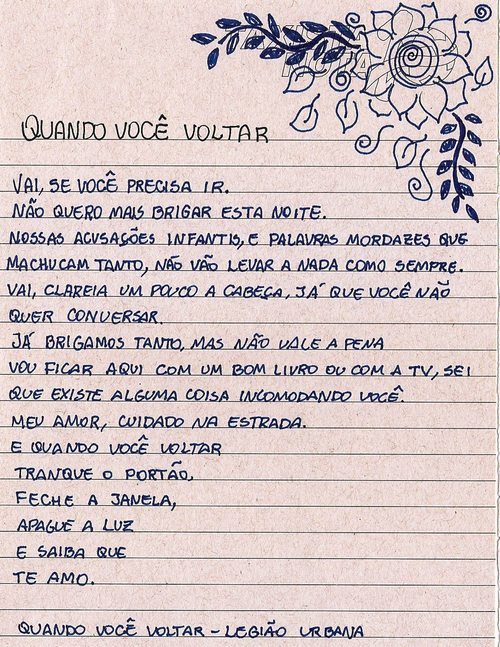 QUANDO VOCÊ VOLTAR
VAI, SE VOCÊ PRECISA IR.
NÃO QUERO MAIS BRIGAR ESTA NOITE.
NOSSAS ACUSAÇÕES INFANTIS, E PALAVRAS MORDAZES QUE
MACHUCAM TANTO, NÃO VÃO LEVAR A NADA COMO SEMPRE.
VAI, CLAREIA UM POUCO A CABEÇA, JÁ QUE VOCÊ NÃO
QUER CONVERSAR.
JÁ BRIGAMOS TANTO, MAS NÃO VALE A PENA
VOU FICAR AQUI COM UM BOM LIVRO OU COM A TV, SEI
QUE EXISTE ALGUMA COISA INCOMODANDO VOCÊ.
MEU AMOR, CUIDADO NA ESTRADA.
E QUANDO VOCÊ VOLTAR
TRANQUE O PORTÃO,
FECHE A JANELA,
APAGUE A LUZ
E SAIBA QUE
TE AMO.
QUANDO VOCÊ VOLTAR - LEGIÃO URBANA